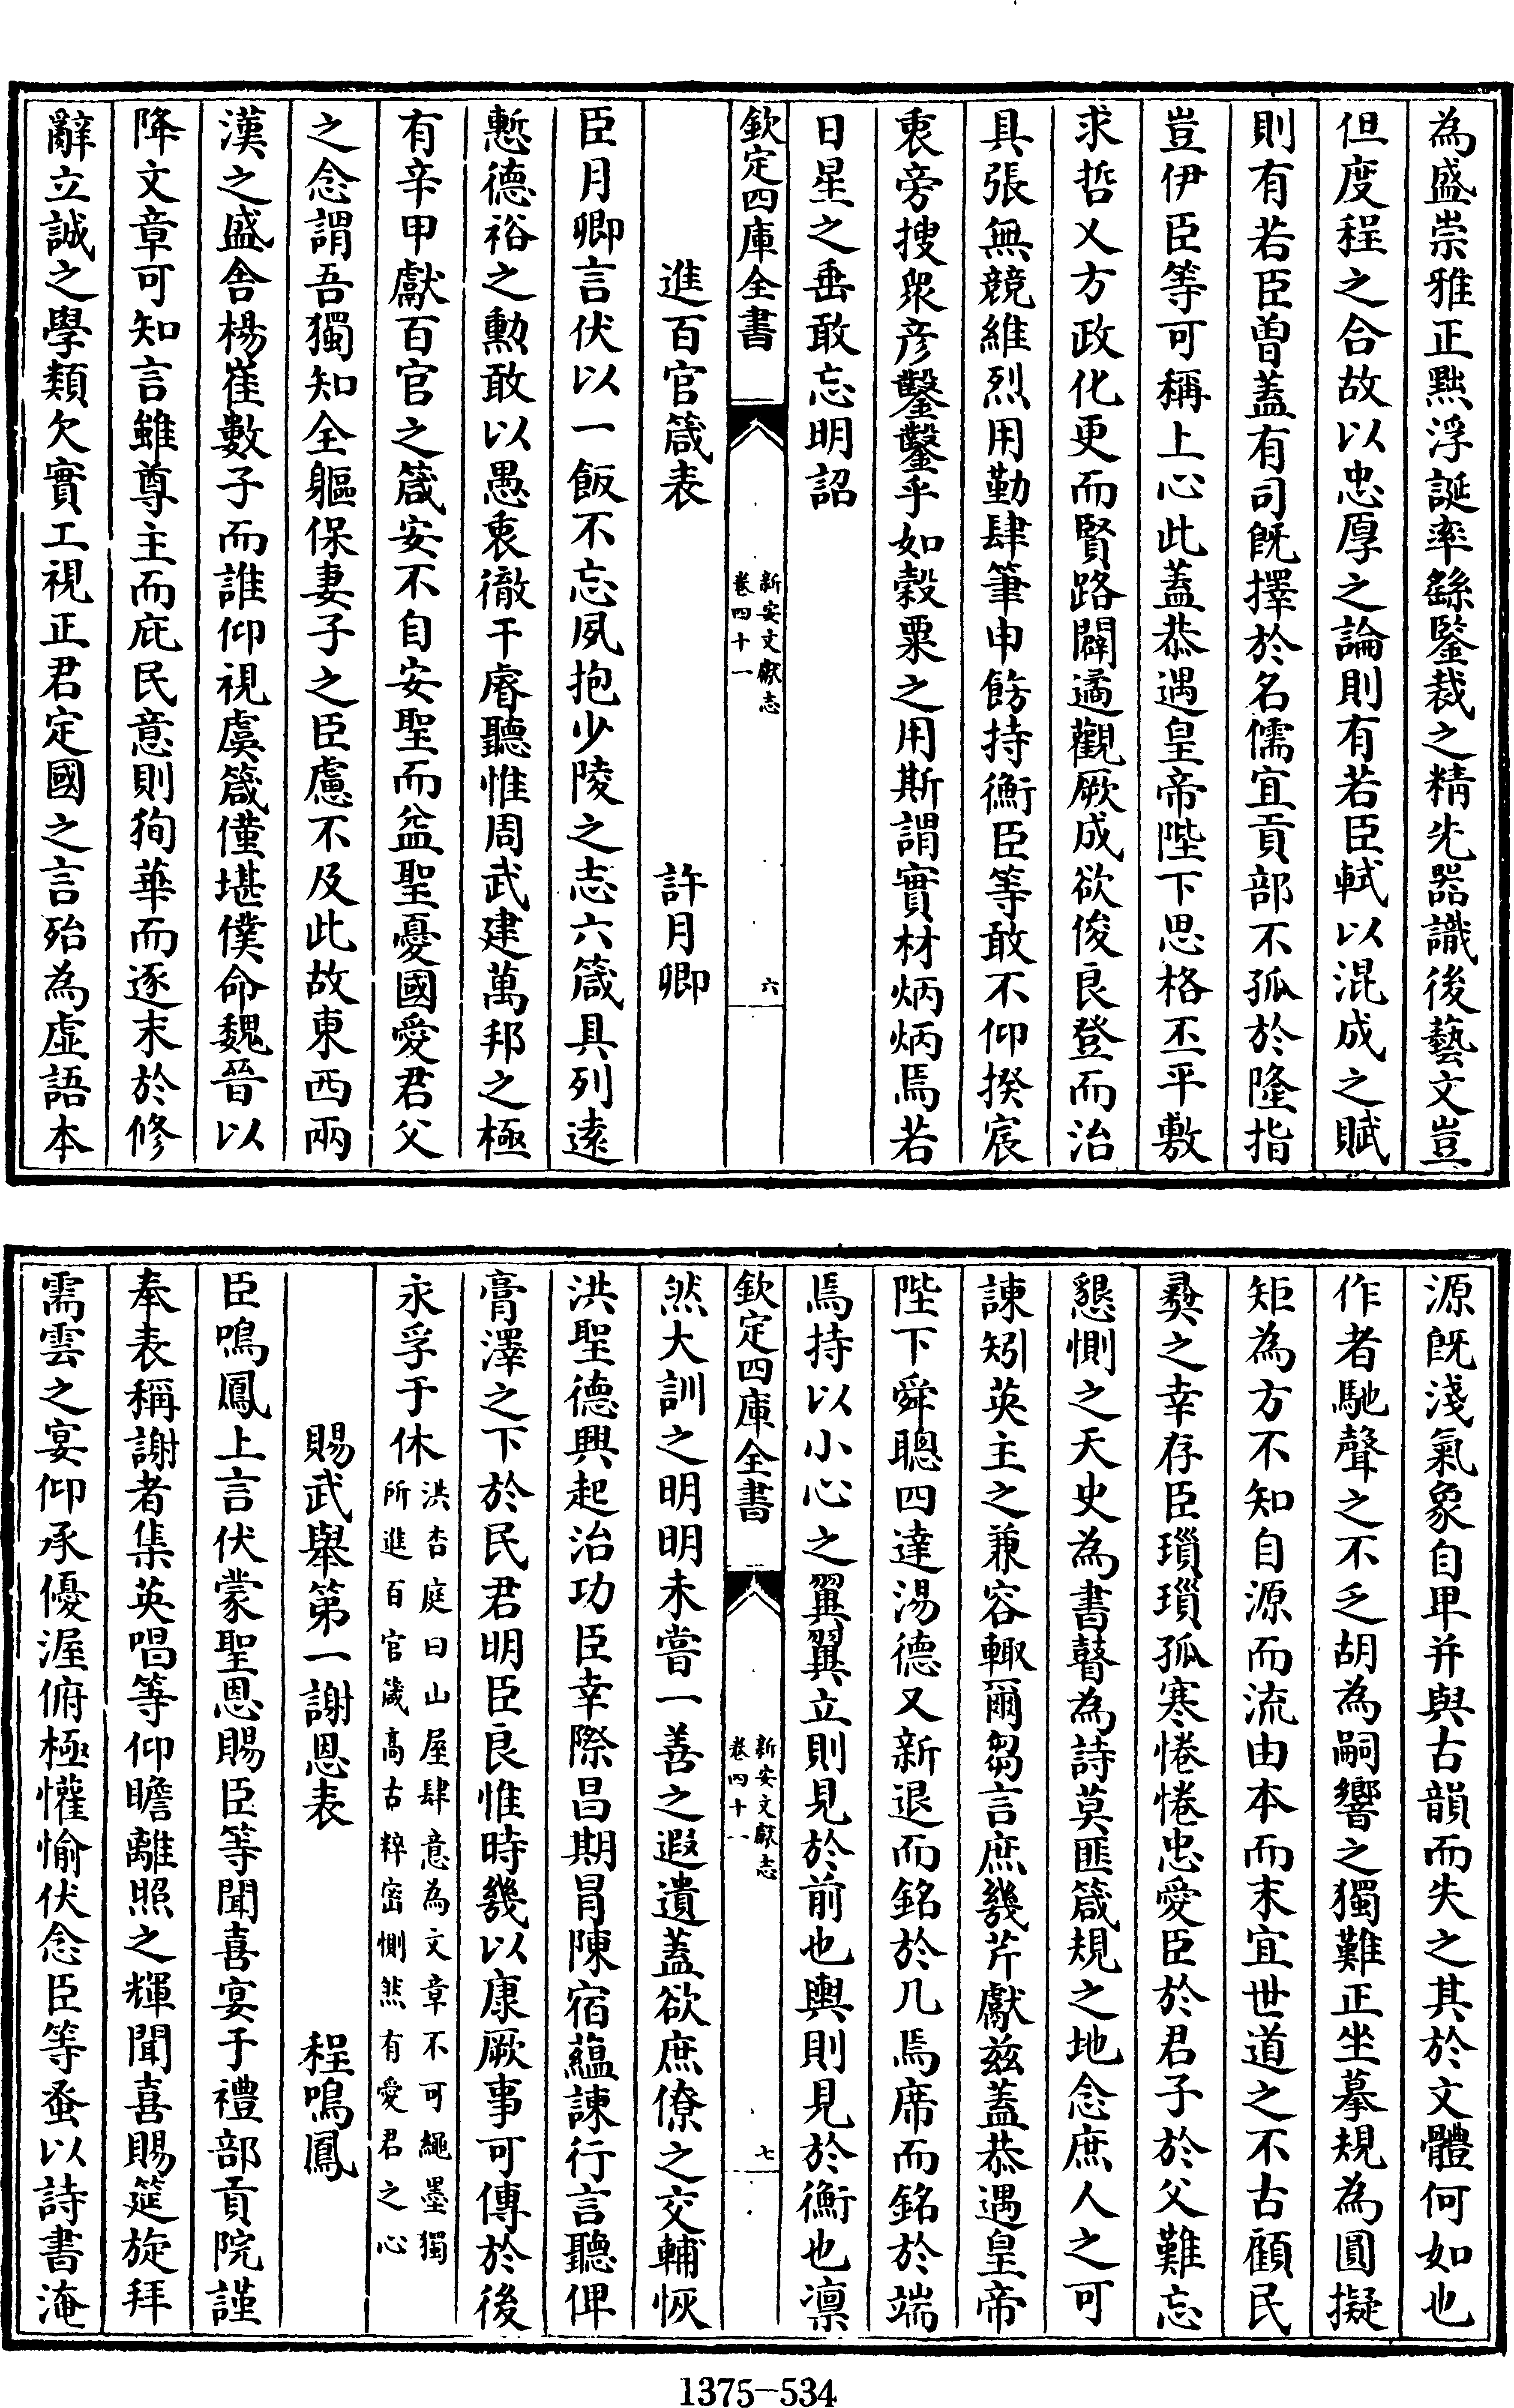 為盛崇雅正黜浮誕率繇鑒裁之精先器識後藝文豈
但度程之合故以忠厚之論則有若臣軾以混成之賦
則有若臣曾蓋有司既擇於名儒宜貢部不孤於隆指
豈伊臣等可稱上心此蓋恭遇皇帝陛下思格丕平敷
求哲乂方政化更而賢路闢遹觀厥成欲俊良登而治
具張無競維烈用勤肆筆申飭持衡臣等敢不仰揆宸
衷旁搜衆彦鑿鑿乎如穀粟之用斯謂實材炳炳焉若
日星之垂敢忘明詔
欽定四庫全書
新安文獻志
卷四十一
六
進百官箴表
許月卿
臣月卿言伏以一飯不忘夙抱少陵之志六箴具列遠
慙德裕之勲敢以愚衷徹干睿聽惟周武建萬邦之極
有辛甲獻百官之箴安不自安聖而益聖憂國愛君父
之念謂吾獨知全軀保妻子之臣慮不及此故東西兩
漢之盛舍楊崔數子而誰仰視虞箴僅堪僕命魏晉以
降文章可知言雖尊主而庇民意則狥華而逐末於修
辭立誠之學類欠實工視正君定國之言殆為虛語本
源既淺氣象自卑并與古韻而失之其於文體何如也
作者馳聲之不乏胡為嗣響之獨難正坐摹規為圓擬
矩為方不知自源而流由本而末宜世道之不古顧民
彛之幸存臣瑣瑣孤寒惓惓忠愛臣於君子於父難忘
懇惻之天史為書瞽為詩莫匪箴規之地念庶人之可
諫矧英主之兼容輙爾芻言庶幾芹獻兹蓋恭遇皇帝
陛下舜聰四達湯德又新退而銘於几焉席而銘於端
焉持以小心之翼翼立則見於前也輿則見於衡也凛
欽定四庫全書
新安文獻志
卷四十一
七
然大訓之明明未嘗一善之遐遺蓋欲庶僚之交輔恢
洪聖德興起治功臣幸際昌期冐陳宿藴諫行言聽俾
膏澤之下於民君明臣良惟時幾以康厥事可傳於後
永孚于休
洪杏庭曰山屋肆意為文章不可繩墨獨
所進百官箴高古粹密惻然有愛君之心
賜武舉第一謝恩表
程鳴鳳
臣鳴鳳上言伏蒙聖恩賜臣等聞喜宴于禮部貢院謹
奉表稱謝者集英唱等仰瞻離照之輝聞喜賜筵旋拜
需雲之宴仰承優渥俯極懽愉伏念臣等蚤以詩書淹
1375-534